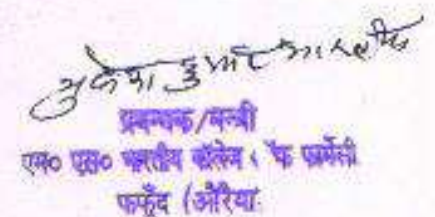 मुकेश कुमार
प्रबन्धक/मन्त्री
एम० एस० भारतीय कॉलेज फ फार्मेसी
फफूँद (औरैया